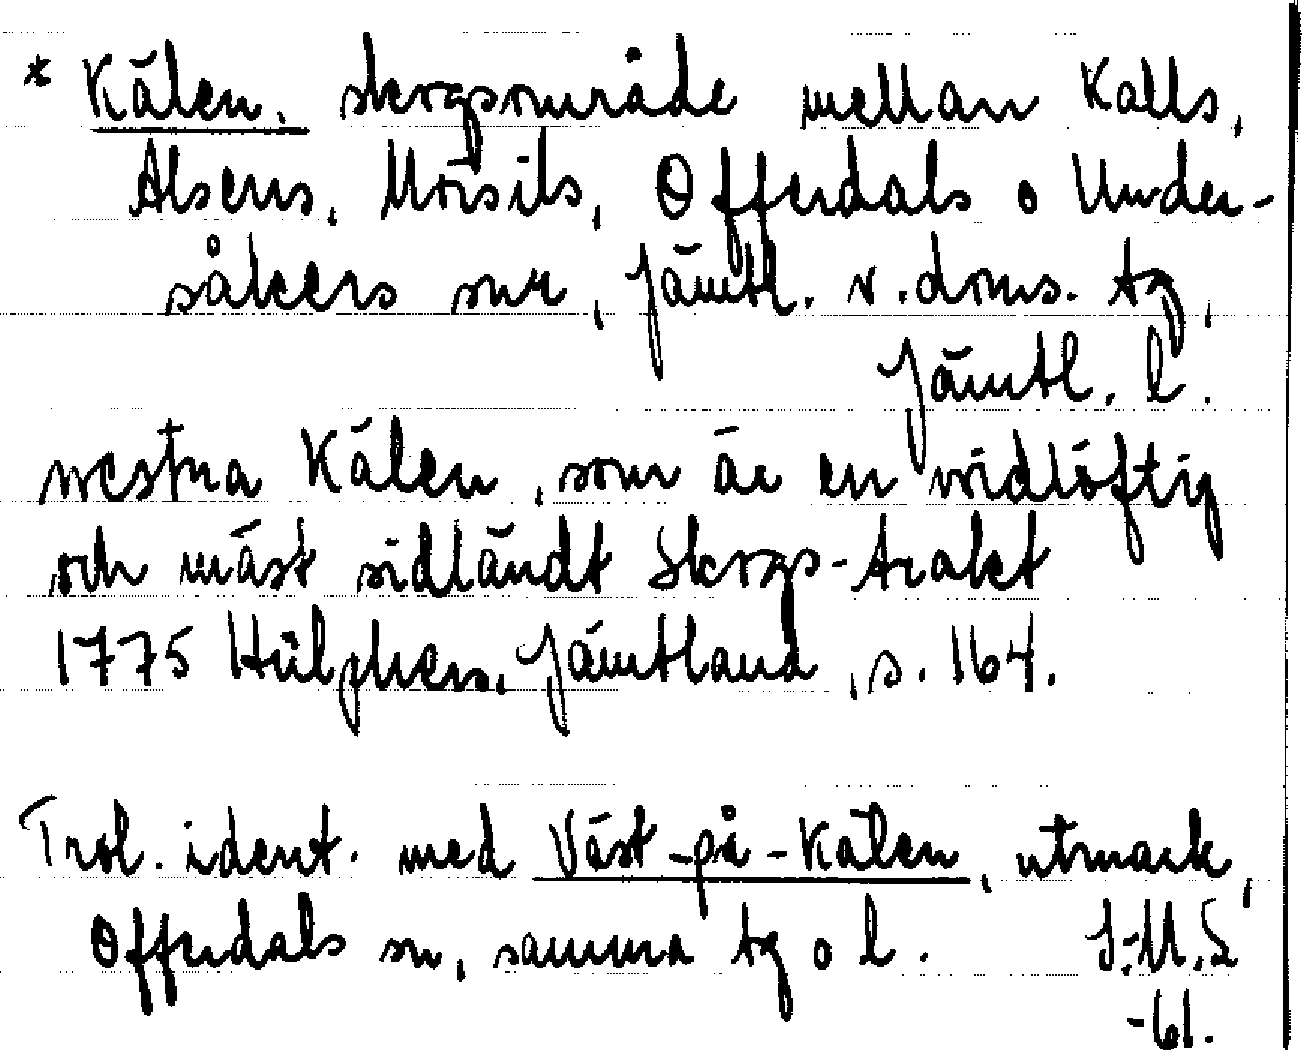 * Kälen, skogsområde mellan Kalls,
Alsens, Mörsils, Offerdals o Under-
såkers snr, Jämtl. v. doms. tg,
Jämtl. l.
westna Kälen, som är en widlöftig
och mäst sidländt Skogs-trakt
1775 Hülphers, Jämtland, s. 164.
Trol. ident. med Väst-på-Kälen, utmark,
Offerdals sn, samma tg o l. J.-M.S
-61.